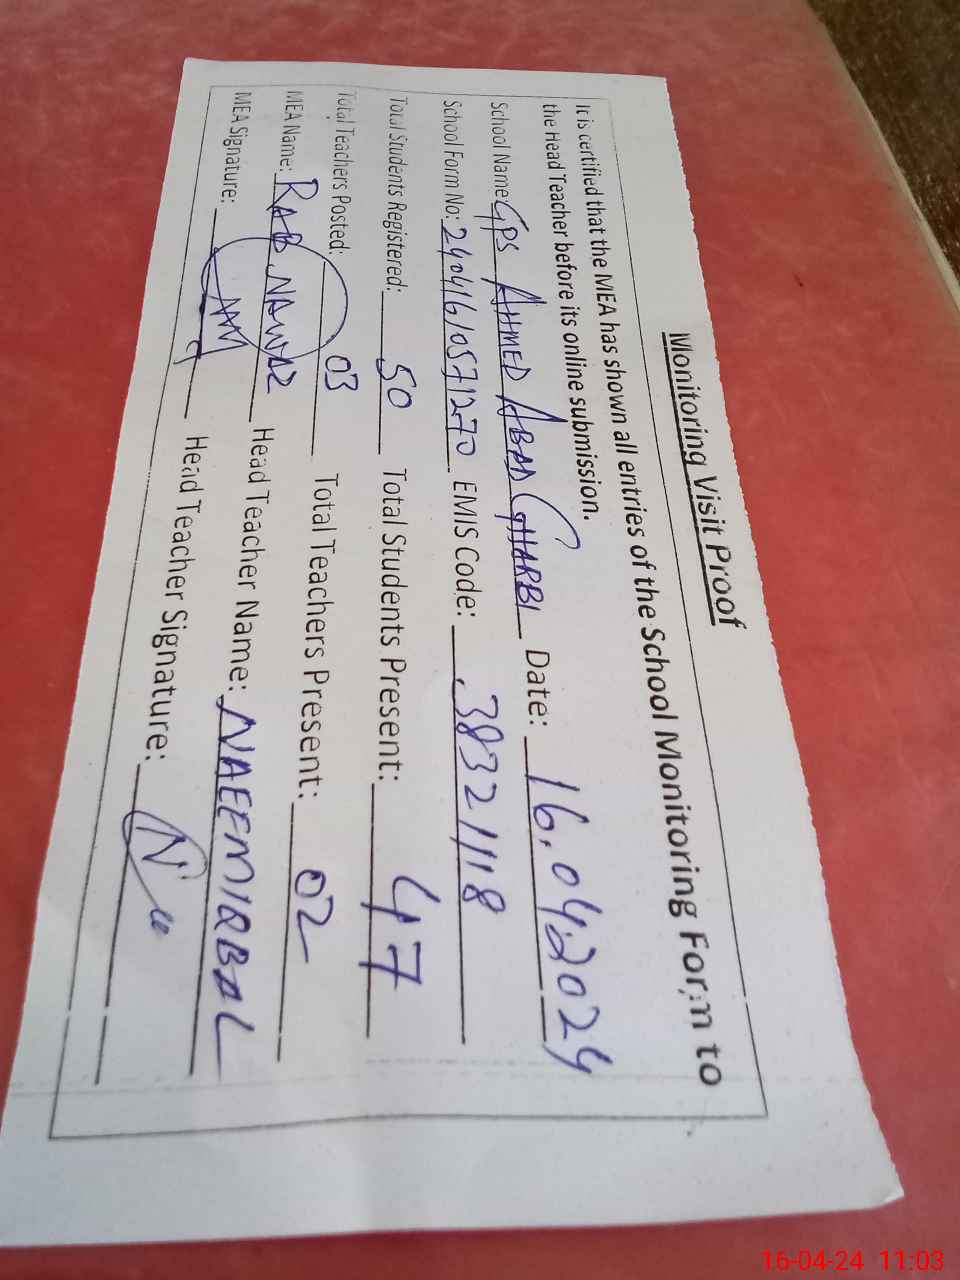 Monitoring Visit Proof
It is certified that the MEA has shown all entries of the School Monitoring Form to
the Head Teacher before its online submission.
School Name: GPS AHMED ABAD GHARBI Date: 16.04.2024
School Form No: 24041610571270 EMIS Code: 38321118
Total Students Registered: 50 Total Students Present: 47
Total Teachers Posted: 03 Total Teachers Present: 02
MEA Name: RAB NAWAZ Head Teacher Name: NAEEM IQBAL
MEA Signature: Head Teacher Signature:
16-04-24 11:03